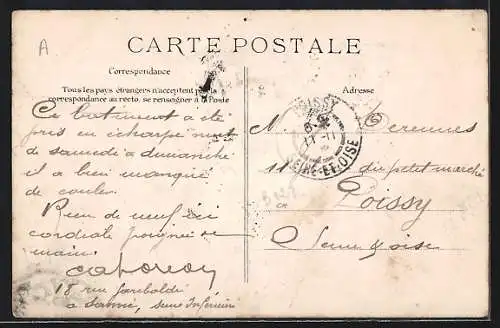 A
CARTE POSTALE
Correspondance
Tous les pays étrangers n'acceptent pas la
correspondance au recto, se renseigner à la Poste
Adresse
Ce bâtiment a été
pris en écharpe nuit
de samedi a dimanche
il a bien manqué
de couler
Rien de neuf ici
cordiale poignée de
main
18 rue Garibaldi
a
POISSY
11-11
SEINE-ET-OISE
M.
11 du petit marché
à Poissy
Seine & oise